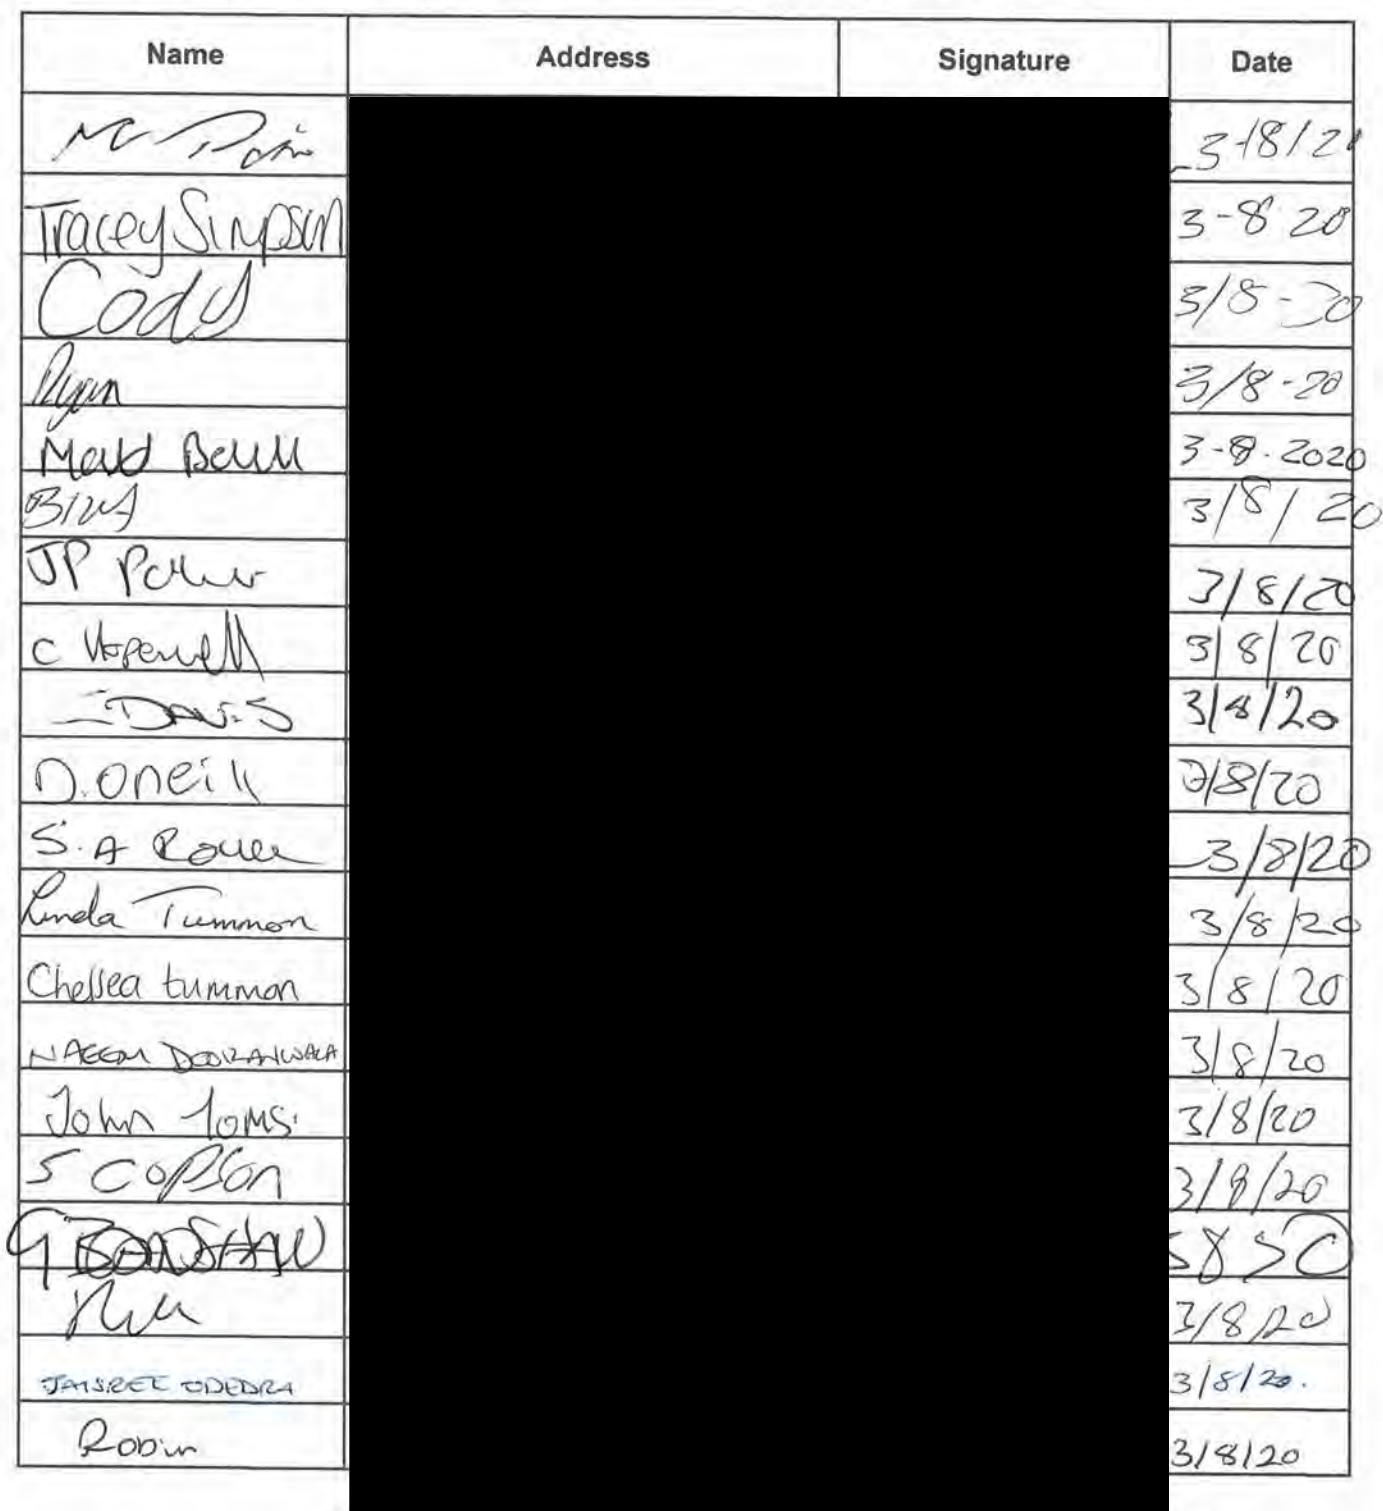 Name Address Signature Date
3/8/20
Tracey Simpson 3-8-20
Cody 3/8-20
Ryan 3/8-20
3-8-2020
BINA 3/8/20
JP 3/8/20
C Hopewell 3/8/20
DAVIS 3/8/20
D. Oneill 3/8/20
S. A 3/8/20
Linda Tummon 3/8/20
Chelsea tummon 3/8/20
NAEEM 3/8/20
John Toms 3/8/20
S COPSON 3/8/20
G 3 8 20
3/8/20
JAISREE ODEDRA 3/8/20.
Robin 3/8/20